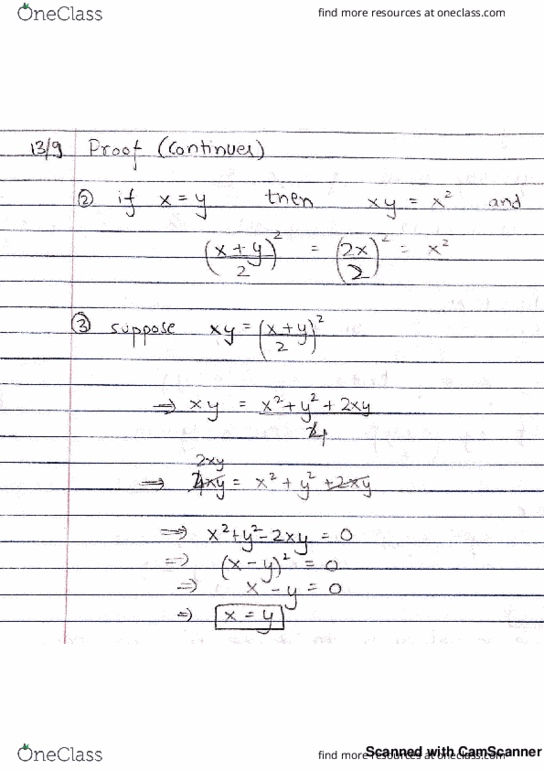 OneClass find more resources at oneclass.com
13/9 Proof (continues)
② if x = y then xy = x² and
(x + y / 2)² = (2x / 2)² = x²
③ suppose xy = (x + y / 2)²
⇒ xy = x² + y² + 2xy / 4
2xy
⇒ 4xy = x² + y² + 2xy
⇒ x² + y² - 2xy = 0
⇒ (x - y)² = 0
⇒ x - y = 0
⇒ x = y
OneClass find more resources at oneclass.com
Scanned with CamScanner